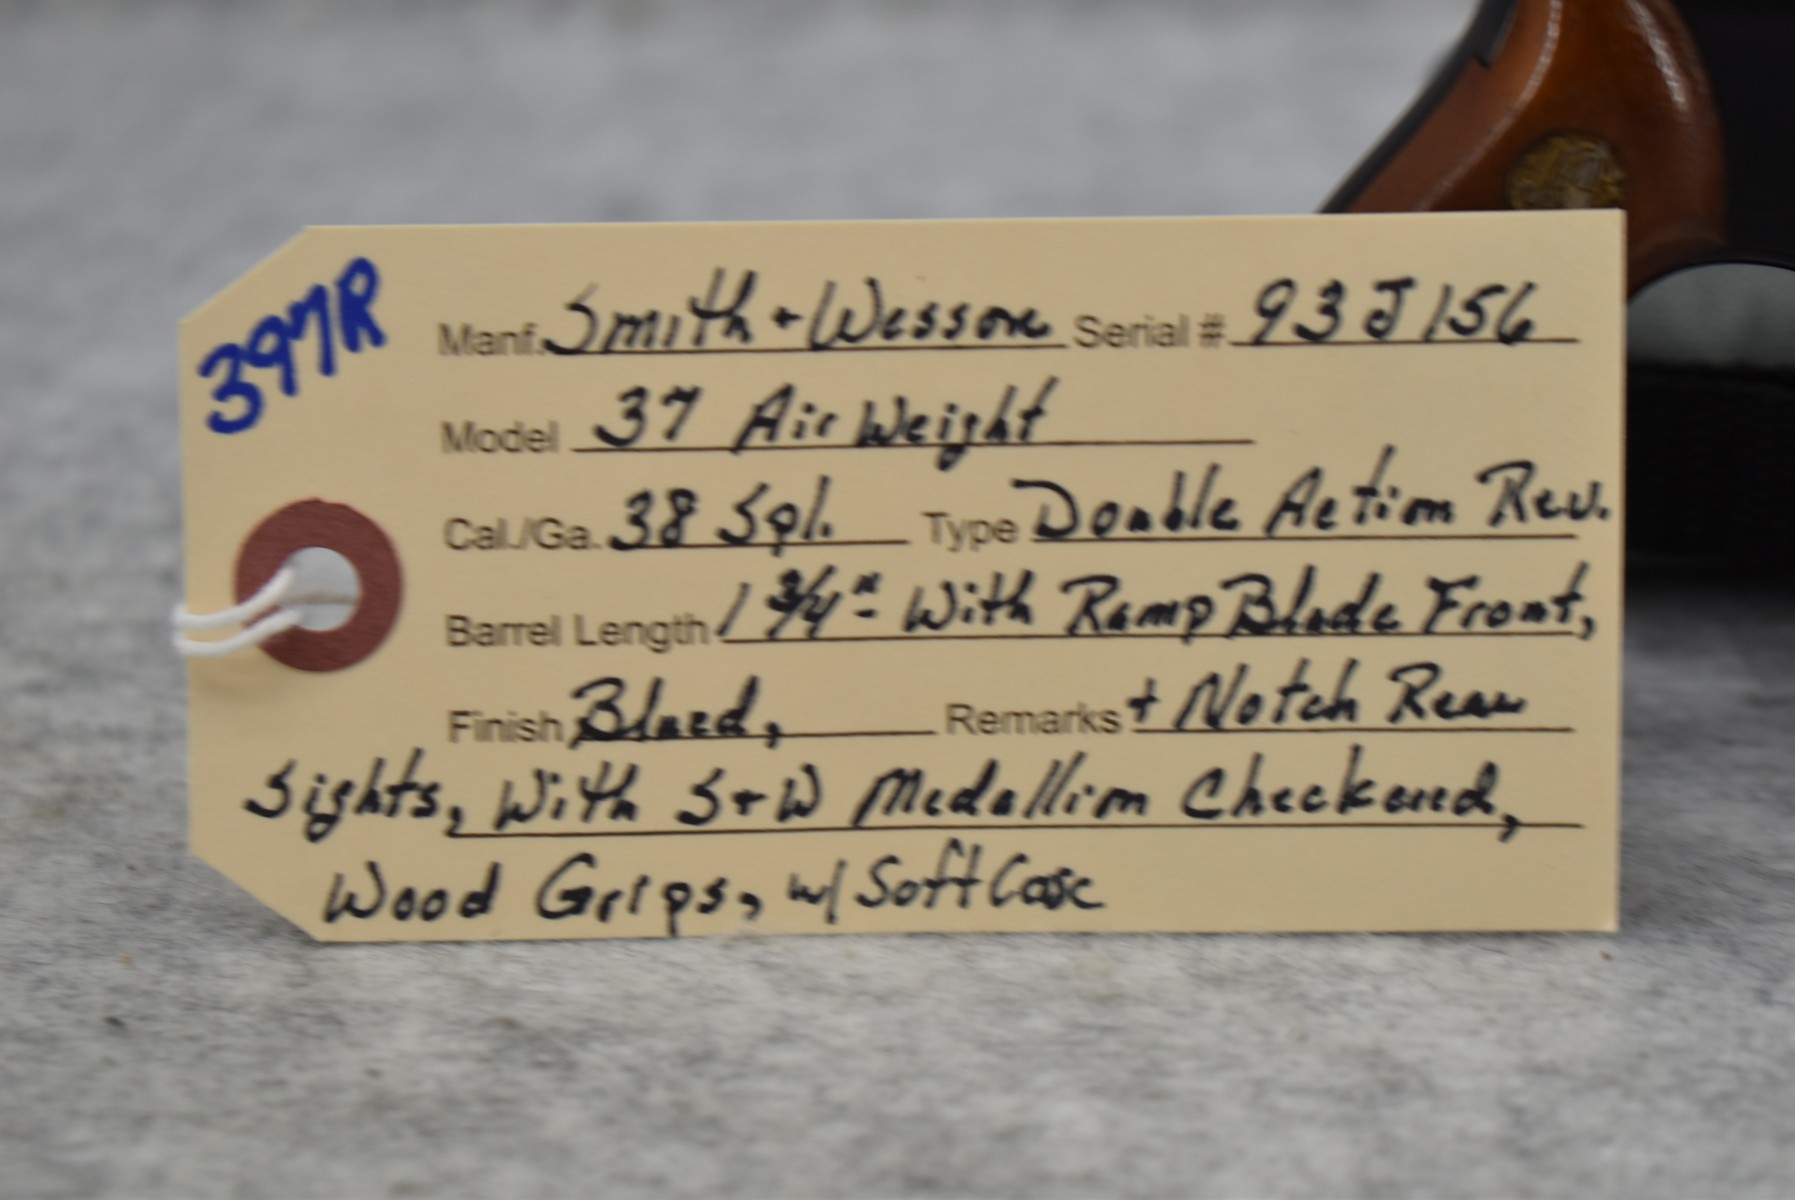 397R
Manf. Smith + Wesson Serial #. 93J156
Model 37 Air Weight
Cal./Ga. 38 Spl. Type Double Action Rev.
Barrel Length 1 3/4" With Ramp Blade Front,
Finish Blued, Remarks + Notch Rear
Sights, With S+W Medallion Checkered,
Wood Grips, w/ Soft Case